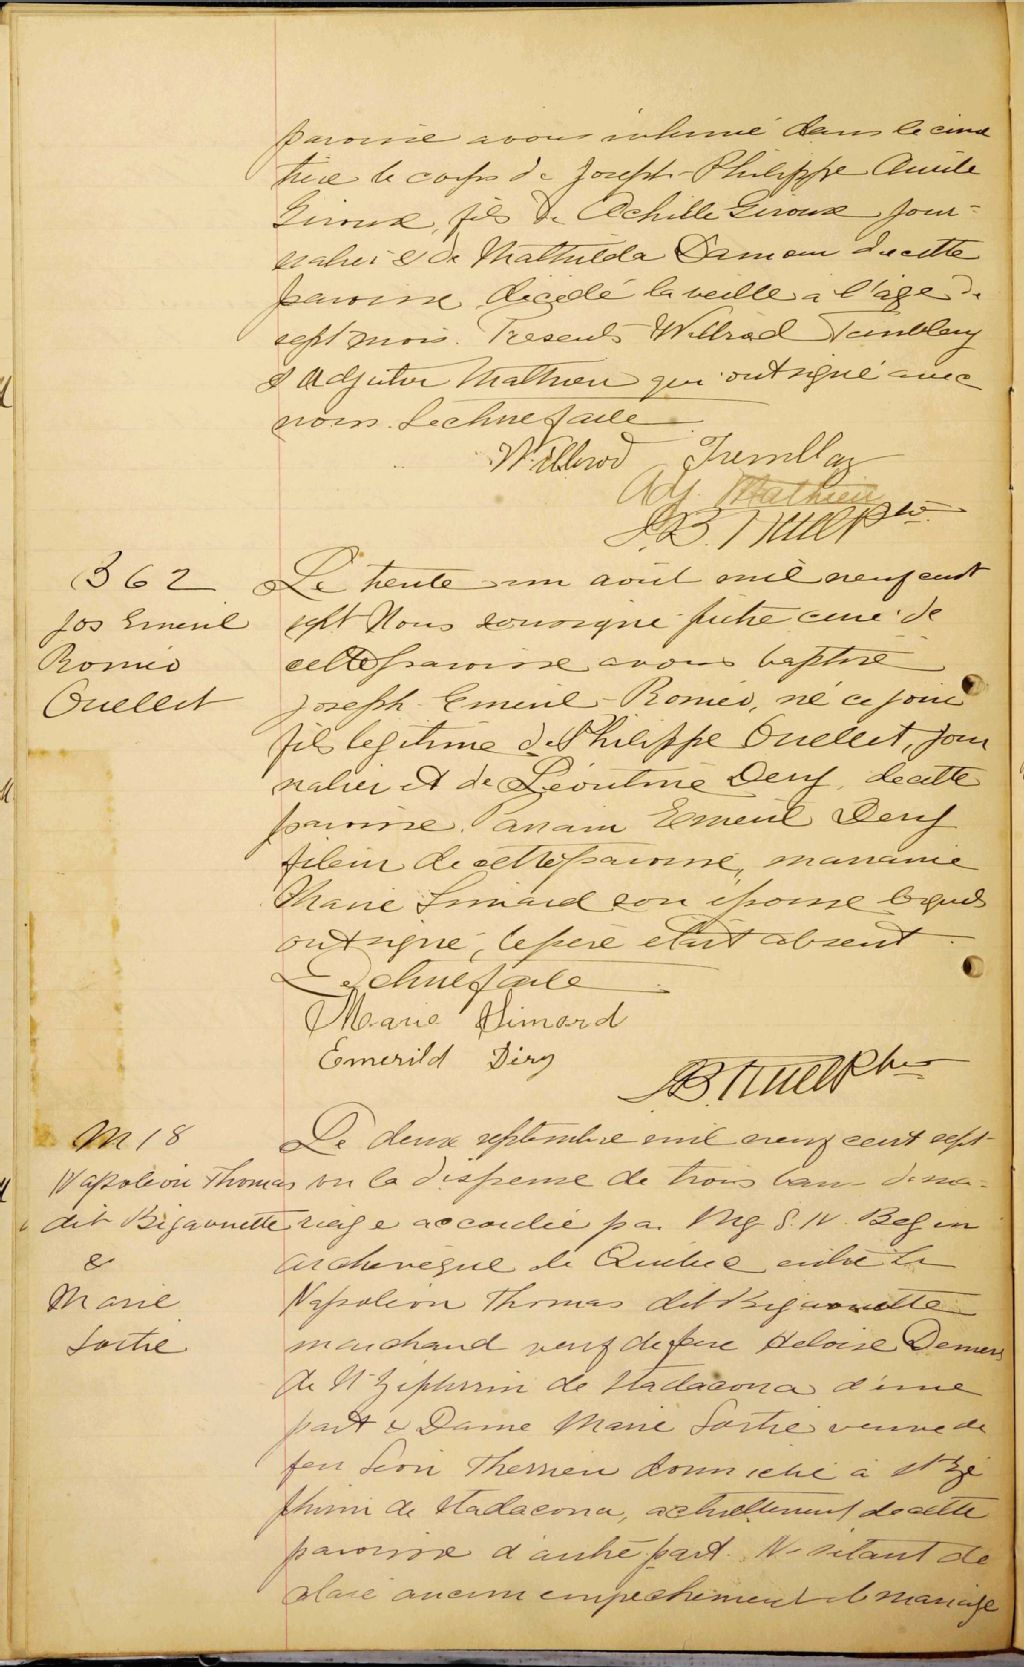 paroisse avons inhumé dans le cime
tière le corps de Joseph-Philippe
Giroux, fils de Achille Giroux jour-
nalier & de Mathilda Damour de cette
paroisse décédé la veille a l'age de
sept mois. Presents Willrod Tremblay
& Adjutor Mathieu qui ont signé avec
nous. Lecture faite
Willrod Tremblay
Adj. Mathieu
J.B. Ruel Ptre
B 62
Jos Emeril
Roméo
Ouellet
Le trente un août mil neuf cent
sept Nous soussigné prêtre curé de
cette paroisse avons baptisé
Joseph-Emeril-Roméo, né ce jour
fils legitime de Philippe Ouellet, jour
nalier et de Léontine Dery, de cette
paroisse. Parrain Emeril Dery
de cette paroisse, marraine
Marie Simard son épouse lesquels
ont signé, le père était absent.
Lecture faite
Marie Simard
Emerild Déry
J.B. Ruel Ptre
M 18
Napoléon Thomas
dit Bigaouette
&
Marie
Sortie
Le deux septembre mil neuf cent sept
vu la dispense de trois bans de ma-
riage accordée par Mg L. N. Begin
archevêque de Québec entre
Napoléon Thomas dit Bigaouette
marchand veuf de feue Heloise Demers
de St Zéphirin de Stadacona d'une
part & Dame Marie Sortie veuve de
feu Léon Therrien domicilié à St Zé
phirin de Stadacona, actuellement de cette
paroisse d'autre part. N'étant dé
claré aucun empechement le mariage